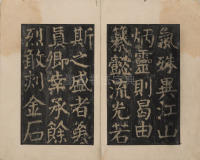 氣殊異江山
炳靈則曷由
纂懿流光若
斯之盛者矣
真卿業承餘
烈敢刻金石